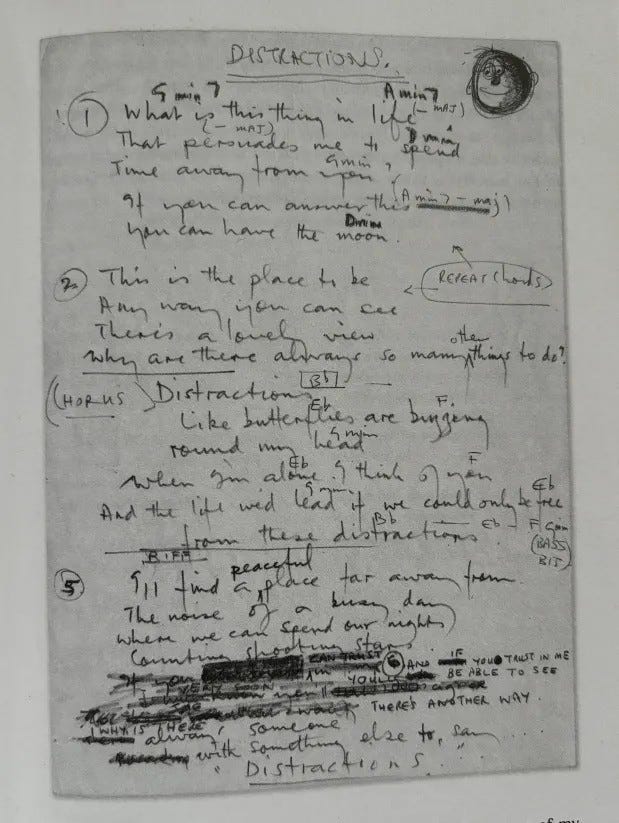 DISTRACTIONS.
G min 7 A min 7
① What is this thing in life (- MAJ)
(- MAJ) D min
That persuades me to spend
G min 7
Time away from you
If you can answer this (A min 7 - maj)
D min
You can have the moon.
2. This is the place to be
REPEAT Chords
Any way you can see
There's a lovely view
other
Why are there always so many things to do?
Bb
CHORUS Distractions
Eb F
Like butterflies are buzzing
G min
round my head
Eb F
When I'm alone I think of you
G min Eb
And the life we'd lead if we could only be free
Bb Eb - F Gmin
from these distractions
(BASS
BIT)
RIFF
peaceful
5 I'll find a place far away from
The noise of a busy day
Where we can spend our nights
Counting shooting stars
If you CAN TRUST
AND IF YOU TRUST IN ME
VERY SOON YOU'LL BE ABLE TO SEE
THERE'S ANOTHER WAY.
WHY IS THERE
always someone
with something else to say ....
" Distractions .. "
of my